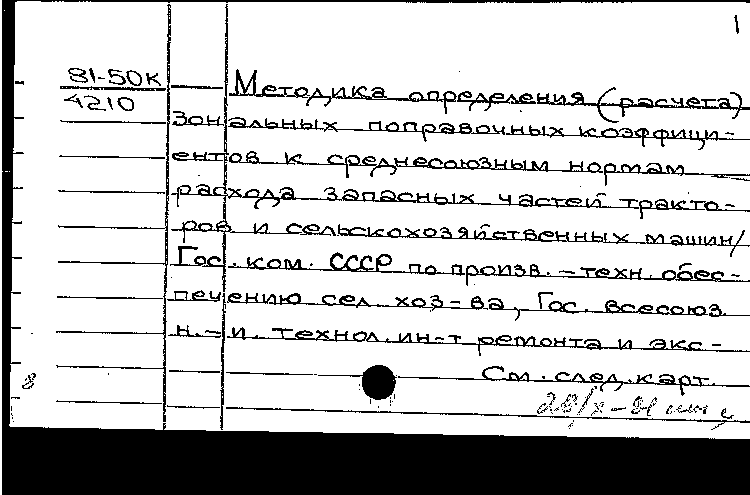 1
81-50к
4210
Методика определения (расчета)
зональных поправочных коэффици-
ентов к среднесоюзным нормам
расхода запасных частей тракто-
ров и сельскохозяйственных машин/
Гос. ком. СССР по произв.-техн. обес-
печению сел. хоз-ва, Гос. всесоюз.
н.-и. технол. ин-т ремонта и экс-
См. след. карт.
8